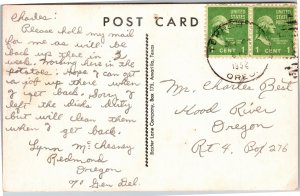 POST CARD
Charles:
Please hold my mail
for me as will be
back up there in 2
week. Working here in the
potatoes. Hope I can get
an job up there when
I get back. Sorry I
left the dishs dirty
but will clean them
when I get back.
Lynn McChesney
Redmond
Oregon
℅ Gen Del.
Baxter Lane Company, Box 173, Amarillo, Texas
UNITED STATES POSTAGE
1 CENT 1
UNITED STATES POSTAGE
1 CENT 1
OREG
Mr. Charles Best
Hood River
Oregon
Rt 4. Box 276